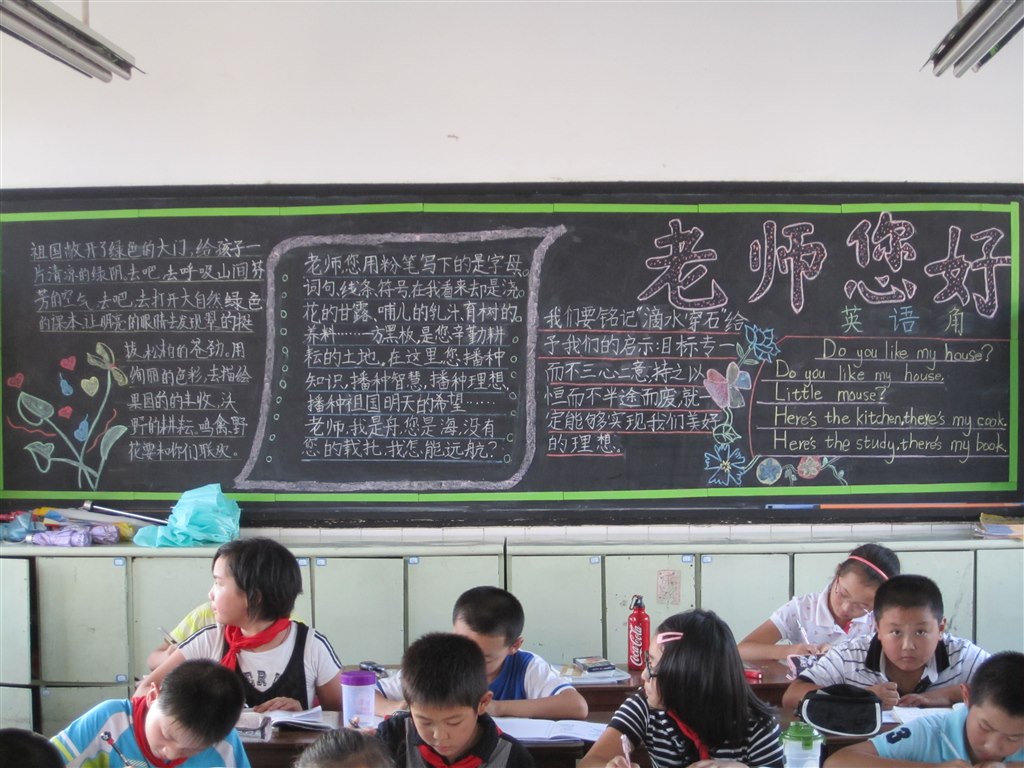 祖国敞开了绿色的大门,给孩子一
片清凉的绿阴,去吧,去呼吸山间芬
芳的空气,去吧,去打开大自然绿色
的课本,让明亮的眼睛去发现翠的挺
拔,松柏的苍劲。用
绚丽的色彩,去描绘
果园的的丰收、沃
野的耕耘,鸣禽野
花要和你们联欢。
老师,您用粉笔写下的是字母。
词句,线条,符号在我看来却是浇
花的甘露、哺儿的乳汁,育树的
养料……一方黑板,是您辛勤耕
耘的土地。在这里,您播种
知识,播种智慧,播种理想,
播种祖国明天的希望……
老师,我是舟,您是海,没有
您的载托,我怎能远航?
老师您好
我们要铭记“滴水穿石”给
予我们的启示:目标专一
而不三心二意,持之以
恒而不半途而废,就一
定能够实现我们美好
的理想。
英语角
Do you like my house?
Do you like my house.
Little mouse?
Here's the kitchen,there's my cook.
Here's the study,there's my book.
Coca-Cola
3